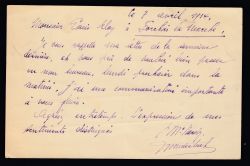 le 7 avril, 1914,
Monsieur Louis Rey à
Je vous rappelle ma lettre de la semaine
dernière, et vous prie de vouloir bien passer en
mon bureau, lundi prochain dans la
matinée. J'ai une communication importante
à vous faire.
Agréez, l'expression de mes
sentiments distingués